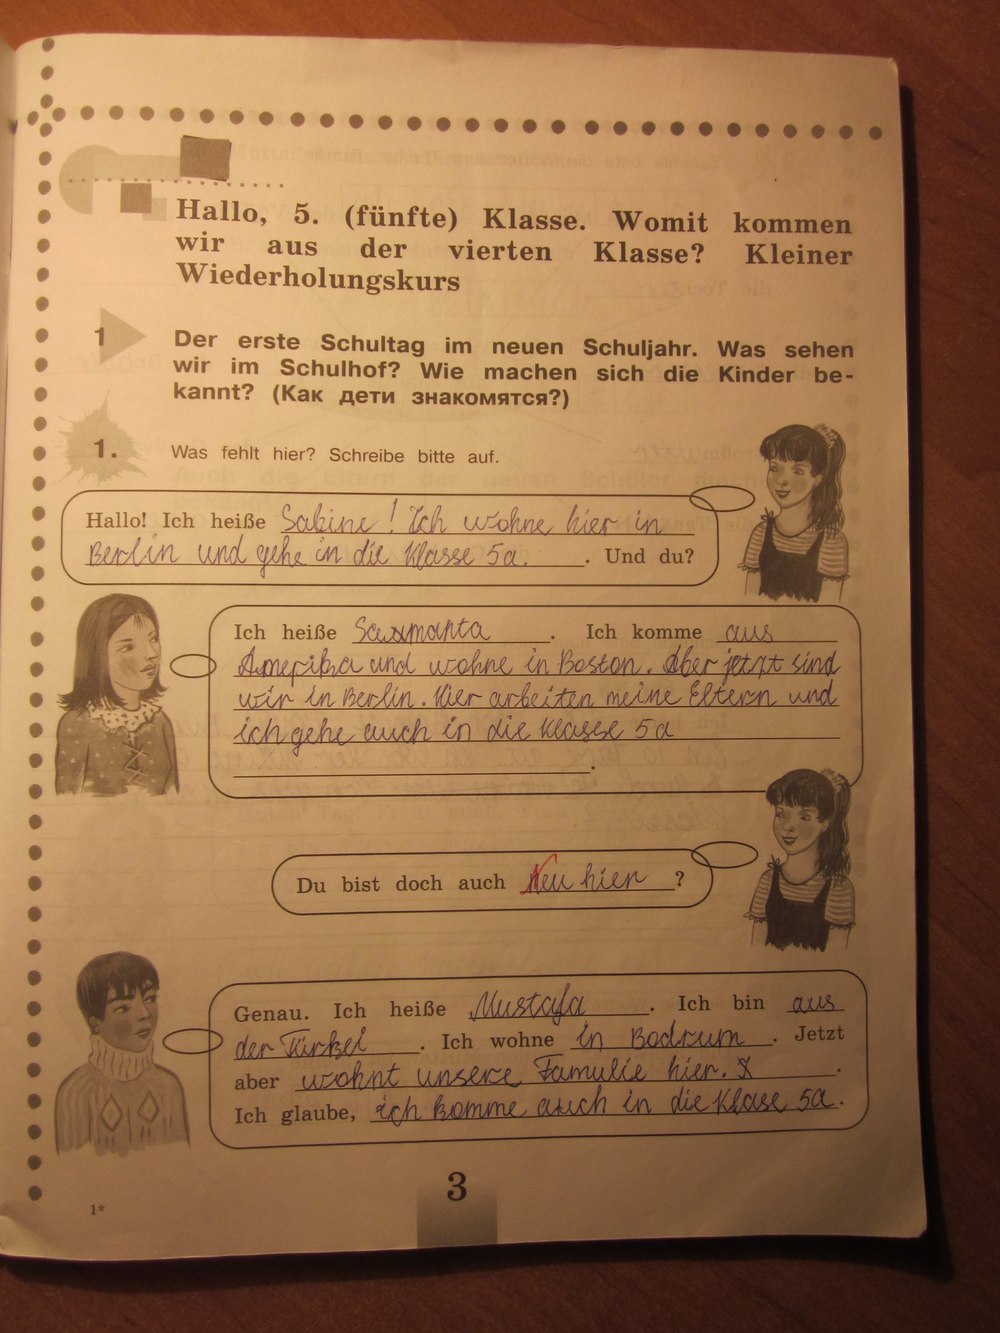 Hallo, 5. (fünfte) Klasse. Womit kommen
wir aus der vierten Klasse? Kleiner
Wiederholungskurs
1
Der erste Schultag im neuen Schuljahr. Was sehen
wir im Schulhof? Wie machen sich die Kinder be-
kannt? (Как дети знакомятся?)
1. Was fehlt hier? Schreibe bitte auf.
Hallo! Ich heiße Sabine! Ich wohne hier in
Berlin und gehe in die Klasse 5a. . Und du?
Ich heiße Saxmanta . Ich komme aus
Amerika und wohne in Boston. Aber jetzt sind
wir in Berlin. Hier arbeiten meine Eltern und
ich gehe auch in die Klasse 5a
.
Du bist doch auch Neu hier ?
Genau. Ich heiße Mustafa . Ich bin aus
der Türkei . Ich wohne in Bodrum . Jetzt
aber wohnt unsere Familie hier. .
Ich glaube, ich komme auch in die Klase 5a .
3
1*